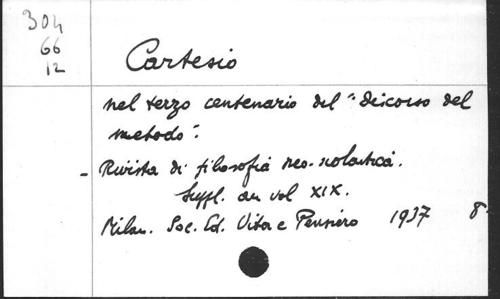 304
66
12
Cartesio
nel terzo centenario del "discorso del
metodo".
- Rivista di filosofia neo-scolastica.
Suppl. au vol XIX.
Milan. Soc. Ed. Vita e Pensiero 1937 8°